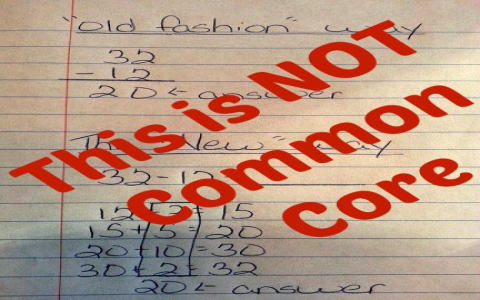 "old fashion" way
32
- 12
20 ← answer
The "New" way
32 - 12
12 + 3 = 15
15 + 5 = 20
20 + 10 = 30
30 + 2 = 32
20 ← answer
This is NOT
Common
Core